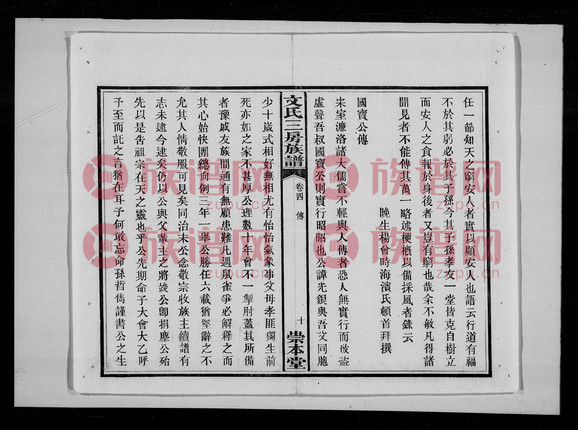 任一節知天之窮安人者實以顯安人也語云行道有福
不於其躬必於其子孫今其子孫孝友一堂皆克自樹立
而安人之食報於身後者又豈有窮也哉余不敏凡得諸
聞見者不能傳其萬一略述梗概以備採風者錄云
晚生楊會時海濱氏頓首拜撰
國寶公傳
宋室濂洛諸大儒嘗不輕與人傳者恐人無實行而故盜
虛聲吾叔國寶公則實行昭昭也公諱光銀與吾父同胞
文氏三房族譜
卷四 傳
十
崇本堂
少十歲式相好無相尤有怡怡氣象事父母孝匪獨生前
死亦如之家不甚厚公理數十年曾不一掣肘蓋其所備
者豫戚友族間通有無顧患難凡遇鼠雀爭必解釋之而
其心始快團總向例三年一舉公勝任六載猶堅辭之不
允其人情敬服可見矣同治未公念敬宗收族主續譜有
志未逮今逮矣仍以公與父輩主之將竣公卽捐塵公始
先以是告祖宗在天之靈也乎公先期命子大會大乙呼
予至而託之言猶在耳子何敢忘命孫哲儁謹書公之生
族譜網
zupu.cn